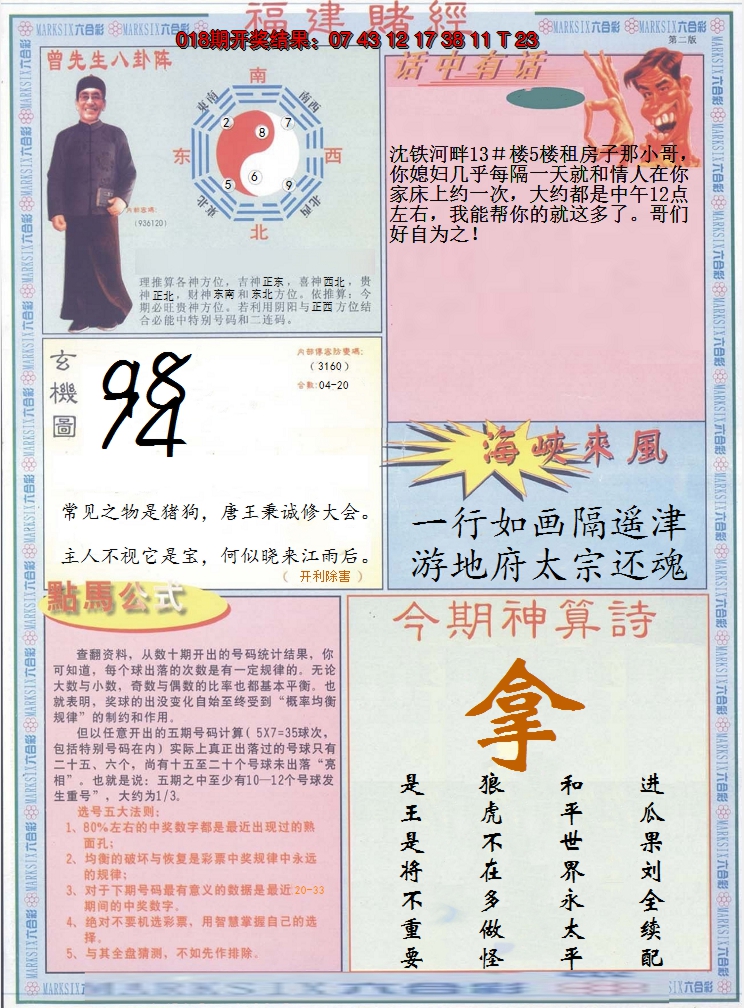 福津賭經
018期开奖结果：07 43 12 17 38 11 T 23
MARKSIX六合彩 MARKSIX六合彩 MARKSIX六合彩 MARKSIX六合彩
第二版
曾先生八卦阵
南
东南
南西
2
8
7
东
西
5
6
9
東北
北西
北
内部密碼：
（936120）
理推算各神方位，吉神正东，喜神西北，贵
神正北，财神东南和东北方位。依推算：今
期必旺贵神方位。若利用阴阳与正西方位结
合必能中特别号码和二连码。
话中有话
沈铁河畔13＃楼5楼租房子那小哥，
你媳妇几乎每隔一天就和情人在你
家床上约一次，大约都是中午12点
左右，我能帮你的就这多了。哥们
好自为之！
玄機圖
98
74
内部傳密除密碼：
（3160）
合数：04-20
常见之物是猪狗，唐王秉诚修大会。
主人不视它是宝，何似晓来江雨后。
（ 开利除害 ）
海峽來風
一行如画隔遥津
游地府太宗还魂
點馬公式
查翻资料，从数十期开出的号码统计结果，你
可知道，每个球出落的次数是有一定规律的。无论
大数与小数，奇数与偶数的比率也都基本平衡。也
就表明，奖球的出没变化自始至终受到“概率均衡
规律”的制约和作用。
但以任意开出的五期号码计算（ 5X7=35球次，
包括特别号码在内）实际上真正出落过的号球只有
二十五、六个，尚有十五至二十个号球未出落“亮
相”。也就是说：五期之中至少有10—12个号球发
生重号”，大约为1/3。
选号五大法则：
1、80%左右的中奖数字都是最近出现过的熟
面孔；
2、均衡的破坏与恢复是彩票中奖规律中永远
的规律；
3、对于下期号码最有意义的数据是最近20-33
期间的中奖数字。
4、绝对不要机选彩票，用智慧掌握自己的选
择。
5、与其全盘猜测，不如先作排除。
今期神算詩
拿
进瓜果刘全续配
和平世界永太平
狼虎不在多做怪
是王是将不重要